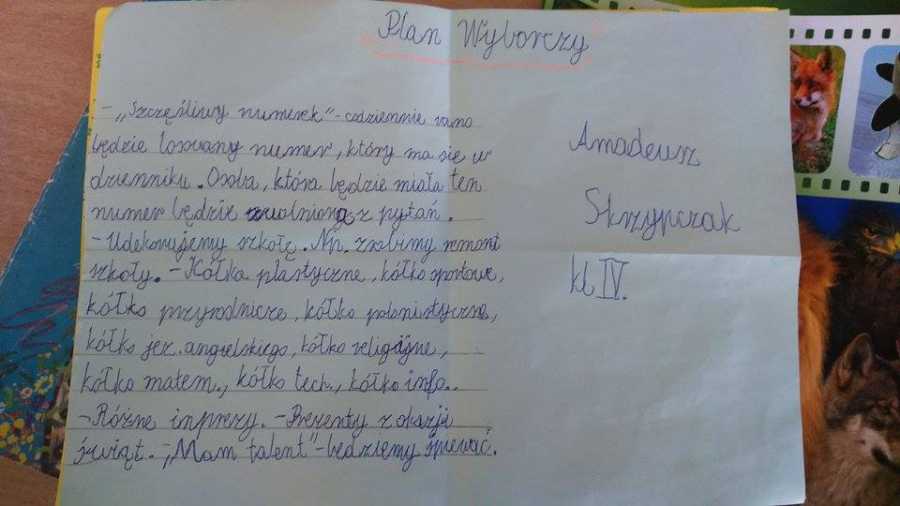 Plan Wyborczy
- „Szczęśliwy numerek" - codziennie rano
będzie losowany numer, który ma się w
dzienniku. Osoba, która będzie miała ten
numer będzie zwolniona z pytań.
- Udekorujemy szkołę. Np. zrobimy remont
szkoły. - Kółka plastyczne, kółko sportowe,
kółko przyrodnicze, kółko polonistyczne,
kółko jęz. angielskiego, kółko religijne,
kółko matem., kółko tech., kółko info..
- Różne imprezy. - Prezenty z okazji
świąt. - „Mam talent" - będziemy śpiewać.
Amadeusz
Skrzypczak
kl IV.